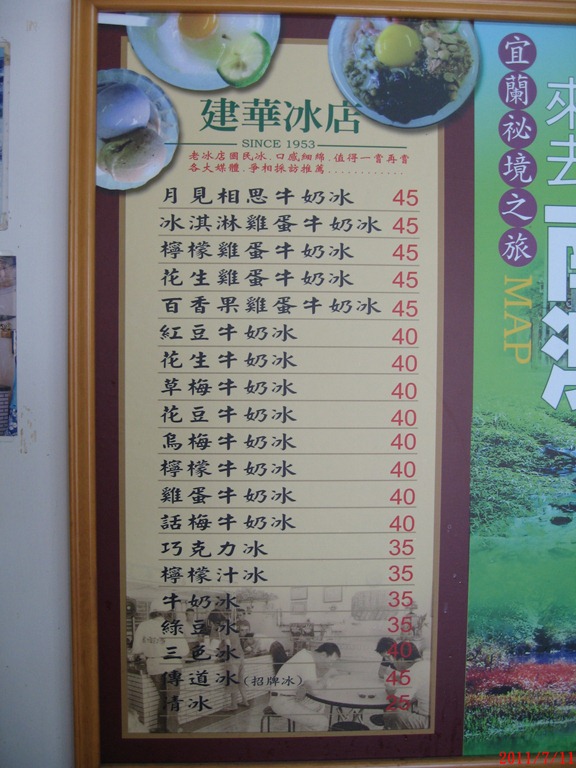 建華冰店
SINCE 1953
老冰店國民冰．口感細綿．值得一嘗再嘗
各大媒體．爭相採訪推薦............
月見相思牛奶冰 45
冰淇淋雞蛋牛奶冰 45
檸檬雞蛋牛奶冰 45
花生雞蛋牛奶冰 45
百香果雞蛋牛奶冰 45
紅豆牛奶冰 40
花生牛奶冰 40
草梅牛奶冰 40
花豆牛奶冰 40
烏梅牛奶冰 40
檸檬牛奶冰 40
雞蛋牛奶冰 40
話梅牛奶冰 40
巧克力冰 35
檸檬汁冰 35
牛奶冰 35
綠豆冰 35
三色冰 40
傳道冰(招牌冰) 45
清冰 25
宜蘭祕境之旅
MAP
來去
2011/7/11